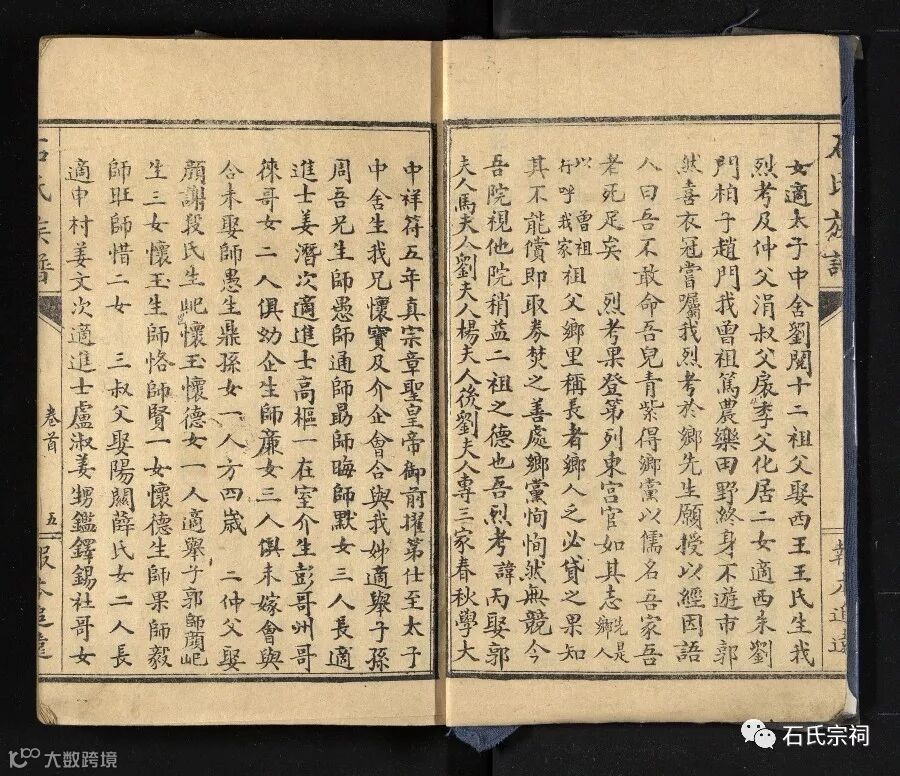 女適太子中舍劉閱十二祖父娶西王王氏生我
烈考及仲父涓叔父扆季父化居二女適西朱劉
門柏子趙門我曾祖篤農樂田野終身不遊市郭
然喜衣冠嘗囑我烈考於鄉先生願授以經因語
人曰吾不敢命吾兒青紫得鄉黨以儒名吾家吾
者死足矣 烈考果登第列東宮官如其志先是鄉人
以曾祖行呼我家祖父鄉里稱長者鄉人之必貸之果知
其不能償即取券焚之善處鄉黨恂恂然無競今
吾院視他院稍益二祖之德也吾烈考諱丙娶郭
夫人馬夫人劉夫人楊夫人後劉夫人專三家春秋學大
石氏族譜
報本追遠
中祥符五年真宗章聖皇帝御前擢第仕至太子
中舍生我兄懷寶及介企會合與我姊適舉子孫
周吾兄生師愚師通師勗師晦師默女三人長適
進士姜潛次適進士高樞一在室介生彭哥州哥
徠哥女二人俱幼企生師廉女三人俱未嫁會與
合未娶師愚生鼎孫女一人方四歲 二仲父娶
顏謝段氏生屺懷玉懷德女一人適舉子郭師顏屺
生三女懷玉生師恪師賢一女懷德生師果師毅
師旺師惜二女 三叔父娶陽關薛氏女二人長
適申村姜文次適進士盧淑姜甥鑑鐸錫社哥女
石氏族譜
卷首
五
報本追遠
大数跨境
石氏宗祠